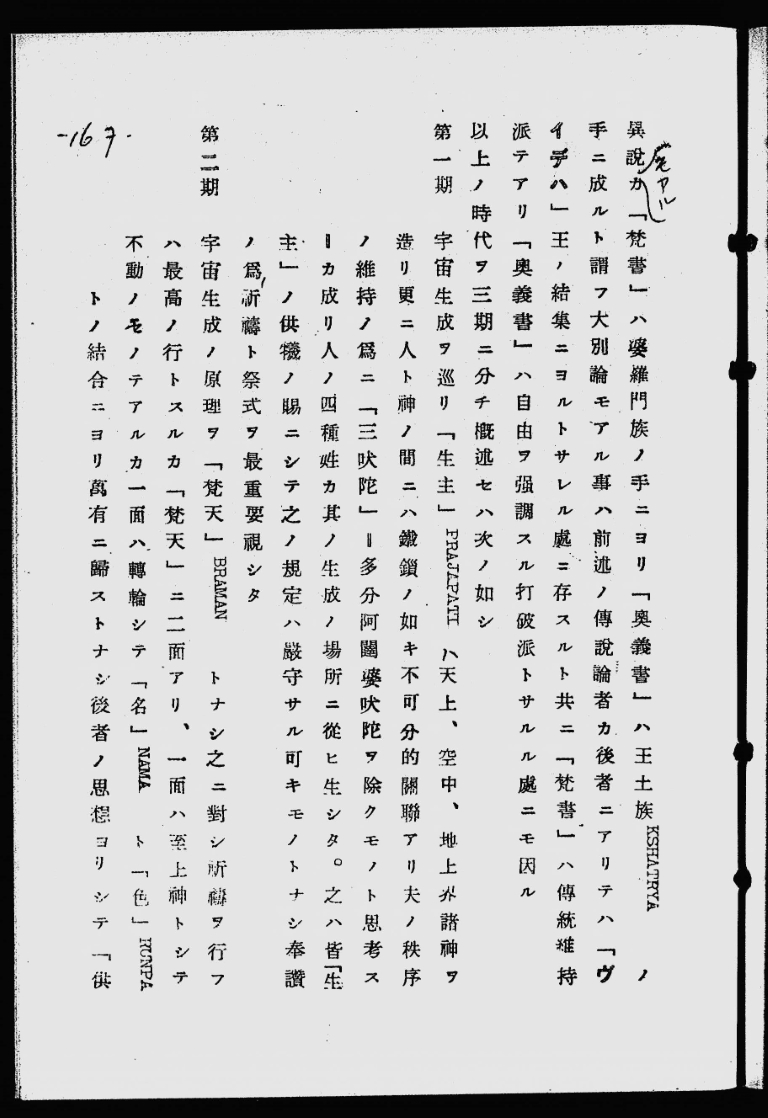 異說カ「梵書」ハ婆羅門族ノ手ニヨリ「奧義書」ハ王士族 KSHATRYA ノ
手ニ成ルト謂フ大別論モアル事ハ前述ノ傳說論者カ後者ニアリテハ「ヴ
イデハ」王ノ結集ニヨルトサレル處ニ存スルト共ニ「梵書」ハ傳統維持
派テアリ「奧義書」ハ自由ヲ强調スル打破派トサルル處ニモ因ル
以上ノ時代ヲ三期ニ分チ槪述セハ次ノ如シ
第一期 宇宙生成ヲ巡リ「生主」PRAJAPATI ハ天上、空中、地上界諸神ヲ
造リ更ニ人ト神ノ間ニハ鐵鎖ノ如キ不可分的關聯アリ夫ノ秩序
ノ維持ノ爲ニ「三吠陀」ー多分阿闥婆吠陀ヲ除クモノト思考ス
ーカ成リ人ノ四種姓カ其ノ生成ノ場所ニ從ヒ生シタ。之ハ皆「生
主」ノ供犧ノ賜ニシテ之ノ規定ハ嚴守サル可キモノトナシ奉讚
ノ爲祈禱ト祭式ヲ最重要視シタ
第二期 宇宙生成ノ原理ヲ「梵天」BRAMAN トナシ之ニ對シ祈禱ヲ行フ
ハ最高ノ行トスルカ「梵天」ニ二面アリ、一面ハ至上神トシテ
不動ノモノテアルカ一面ハ轉輪シテ「名」NAMA ト「色」RUNPA
トノ結合ニヨリ萬有ニ歸ストナシ後者ノ思想ヨリシテ「供
-167-